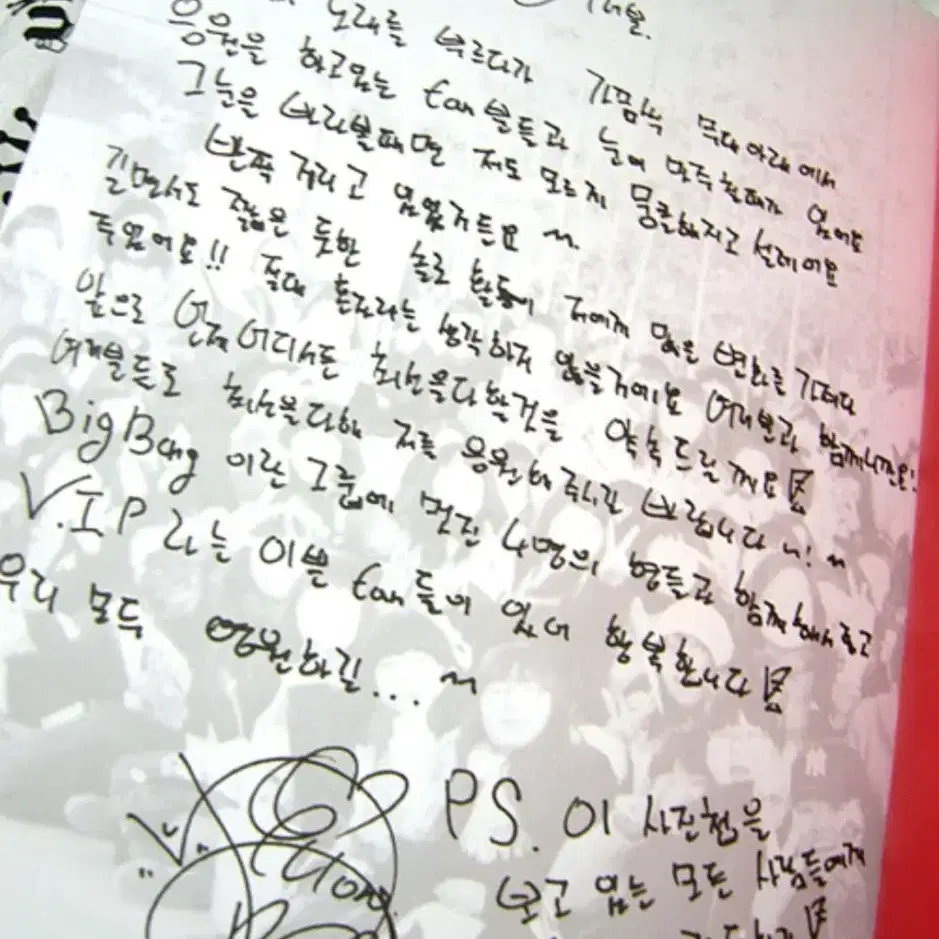 노래를 부르다가 가끔씩 무대아래에서
응원을 하고있는 fan분들과 눈이 마주칠때가 있어요
그 눈을 바라볼때면 저도 모르게 뭉클해지고 설레어요
반짝거리고 있었거든요 ~
길면서도 짧은 듯한 솔로 활동이 저에게 많은 변화를 가져다
주었어요!! 절대 혼자라는 생각하지 않을거에요 여러분과 함께니깐요!
앞으로 언제어디서든 최선을다할것을 약속드릴께요
여러분들도 최선을다해 저를 응원해주시길 바랍니다 ~! ~
BigBang 이란 그룹에 멋진 4명의 형들과 함께해서 좋고
V.I.P 라는 이쁜 fan들이 있어 행복합니다
우리 모두 영원하길... ~
P.S. 이 사진첩을
보고 있는 모든 사람들에게